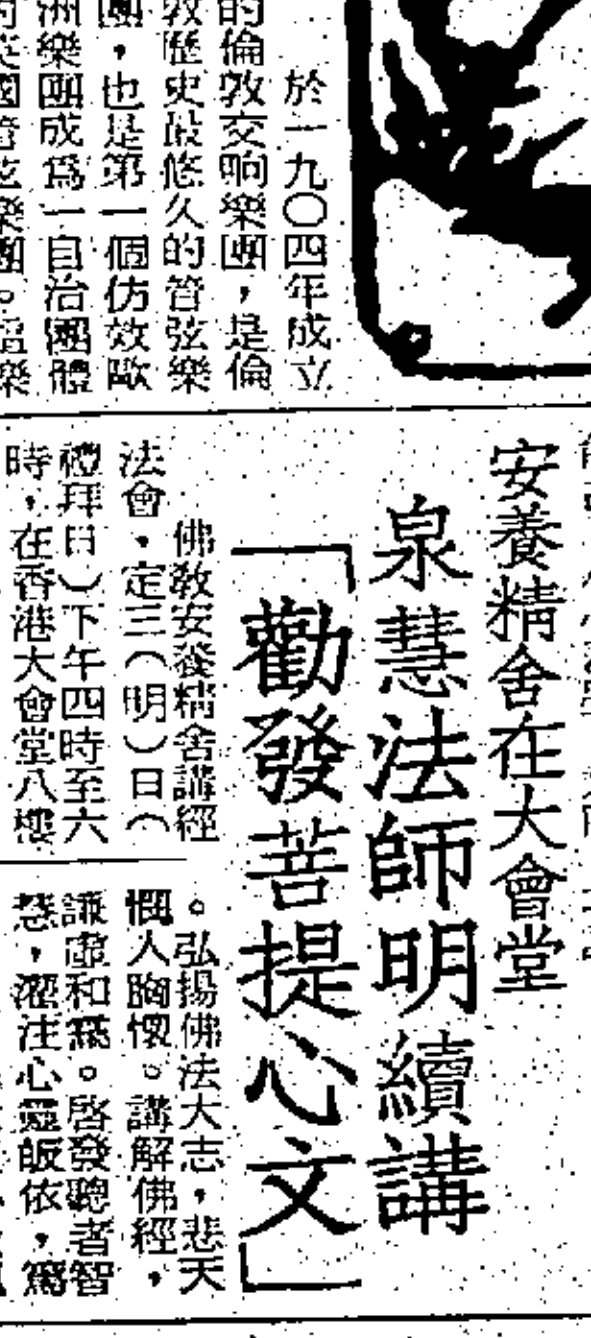 於一九〇四年成立
的倫敦交响樂團,是倫
敦歷史最悠久的管弦樂
團,也是第一個仿效歐
洲樂團成爲一自治團體
安養精舍在大會堂
泉慧法師明續講
「勸發菩提心文」
佛教安養精舍講經
法會,定三(明)日(
禮拜日)下午四時至六
時,在香港大會堂八樓
。弘揚佛法大志,悲天
憫人胸懷。講解佛經,
謙虛和藹。啓發聽者智
慧,濯注心靈皈依,篤